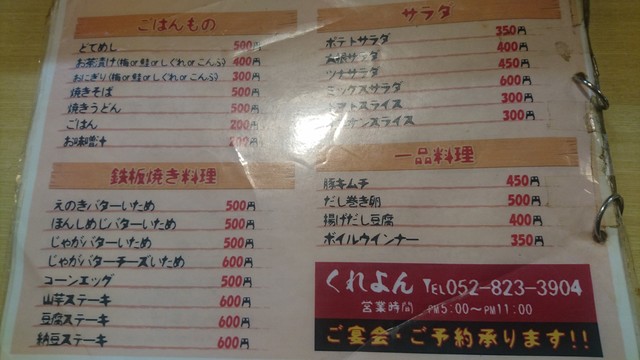 ごはんもの
どてめし 500円
お茶漬け(梅or鮭orしぐれorこんぶ) 400円
おにぎり(梅or鮭orしぐれorこんぶ) 300円
焼きそば 500円
焼きうどん 500円
ごはん 200円
お味噌汁 200円
鉄板焼き料理
えのきバターいため 500円
ほんしめじバターいため 500円
じゃがバターいため 500円
じゃがバターチーズいため 600円
コーンエッグ 500円
山芋ステーキ 600円
豆腐ステーキ 600円
納豆ステーキ 600円
サラダ
ポテトサラダ 350円
サラダ 400円
ツナサラダ 450円
ミックスサラダ 600円
トマトスライス 300円
スライス 300円
一品料理
豚キムチ 450円
だし巻き卵 500円
揚げだし豆腐 400円
ボイルウインナー 350円
くれよん TEL052-823-3904
営業時間 PM5:00~PM11:00
ご宴会・ご予約承ります!!